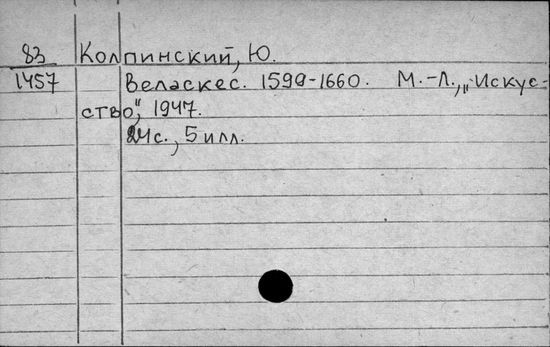 83 Колпинский, Ю.
1457 Веласкес. 1599-1660. М.-Л., „Искус-
ство", 1947.
24с., 5 илл.